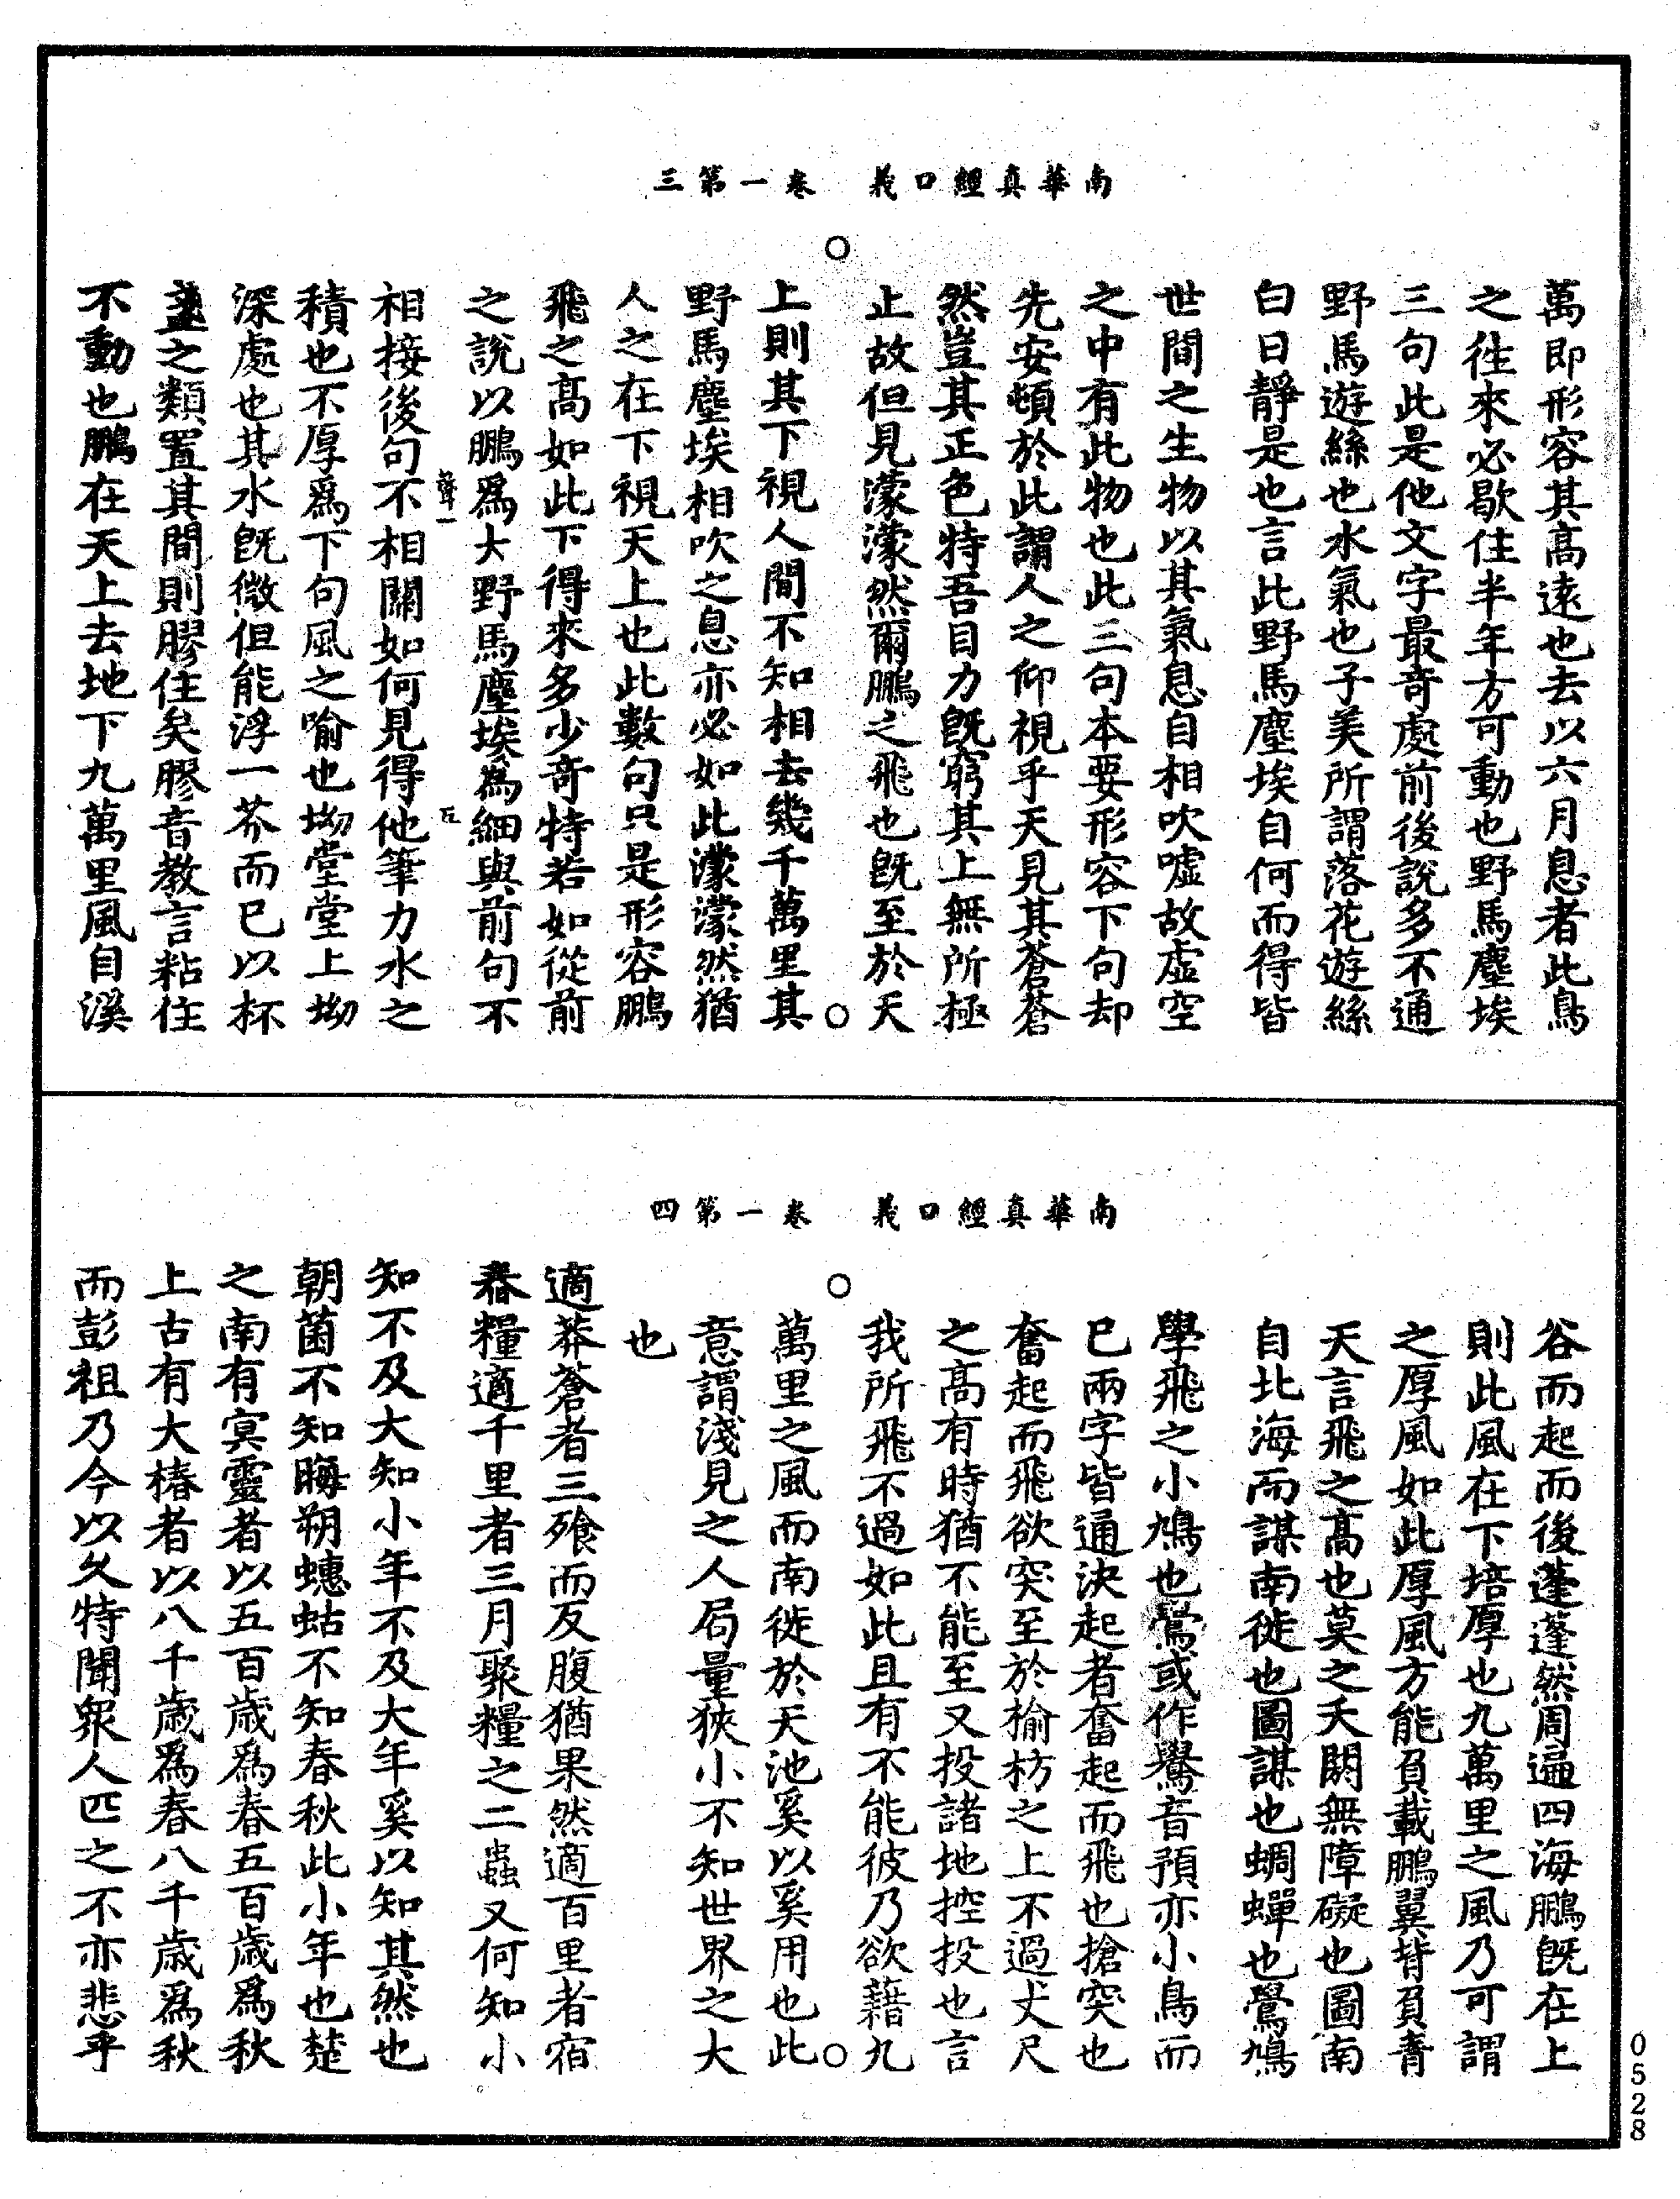 南華真經口義　卷一第三
萬即形容其高遠也去以六月息者此鳥
之徃來必歇住半年方可動也野馬塵埃
三句此是他文字最竒處前後說多不通
野馬遊絲也水氣也子美所謂落花遊絲
白日靜是也言此野馬塵埃自何而得皆
世間之生物以其氣息自相吹噓故虚空
之中有此物也此三句本要形容下句却
先安頓於此謂人之仰視乎天見其蒼蒼
然豈其正色特吾目力旣窮其上無所極
止故但見濛濛然爾鵬之飛也旣至於天
上則其下視人間不知相去幾千萬里其
野馬塵埃相吹之息亦必如此濛濛然猶
人之在下視天上也此數句只是形容鵬
飛之高如此下得來多少竒特若如從前
之說以鵬爲大野馬塵埃爲細與前句不
相接後句不相關如何見得他筆力水之
積也不厚爲下句風之喻也坳堂堂上坳
深處也其水旣微但能浮一芥而已以杯
盞之類置其間則膠住矣膠音教言粘住
不動也鵬在天上去地下九萬里風自溪
南華真經口義　卷一第四
谷而起而後蓬蓬然周遍四海鵬旣在上
則此風在下培厚也九萬里之風乃可謂
之厚風如此厚風方能負載鵬翼背負青
天言飛之高也莫之夭閼無障礙也圖南
自北海而謀南徙也圖謀也蜩蟬也鷽鳩
學飛之小鳩也鷽或作鸒音預亦小鳥而
已兩字皆通決起者奮起而飛也搶突也
奮起而飛欲突至於榆枋之上不過丈尺
之高有時猶不能至又投諸地控投也言
我所飛不過如此且有不能彼乃欲藉九
萬里之風而南徙於天池奚以奚用也此
意謂淺見之人局量狹小不知世界之大
也
適莽蒼者三飱而反腹猶果然適百里者宿
舂糧適千里者三月聚糧之二蟲又何知小
知不及大知小年不及大年奚以知其然也
朝菌不知晦朔蟪蛄不知春秋此小年也楚
之南有冥靈者以五百歲爲春五百歲爲秋
上古有大椿者以八千歲爲春八千歲爲秋
而彭祖乃今以久特聞衆人匹之不亦悲乎
0528